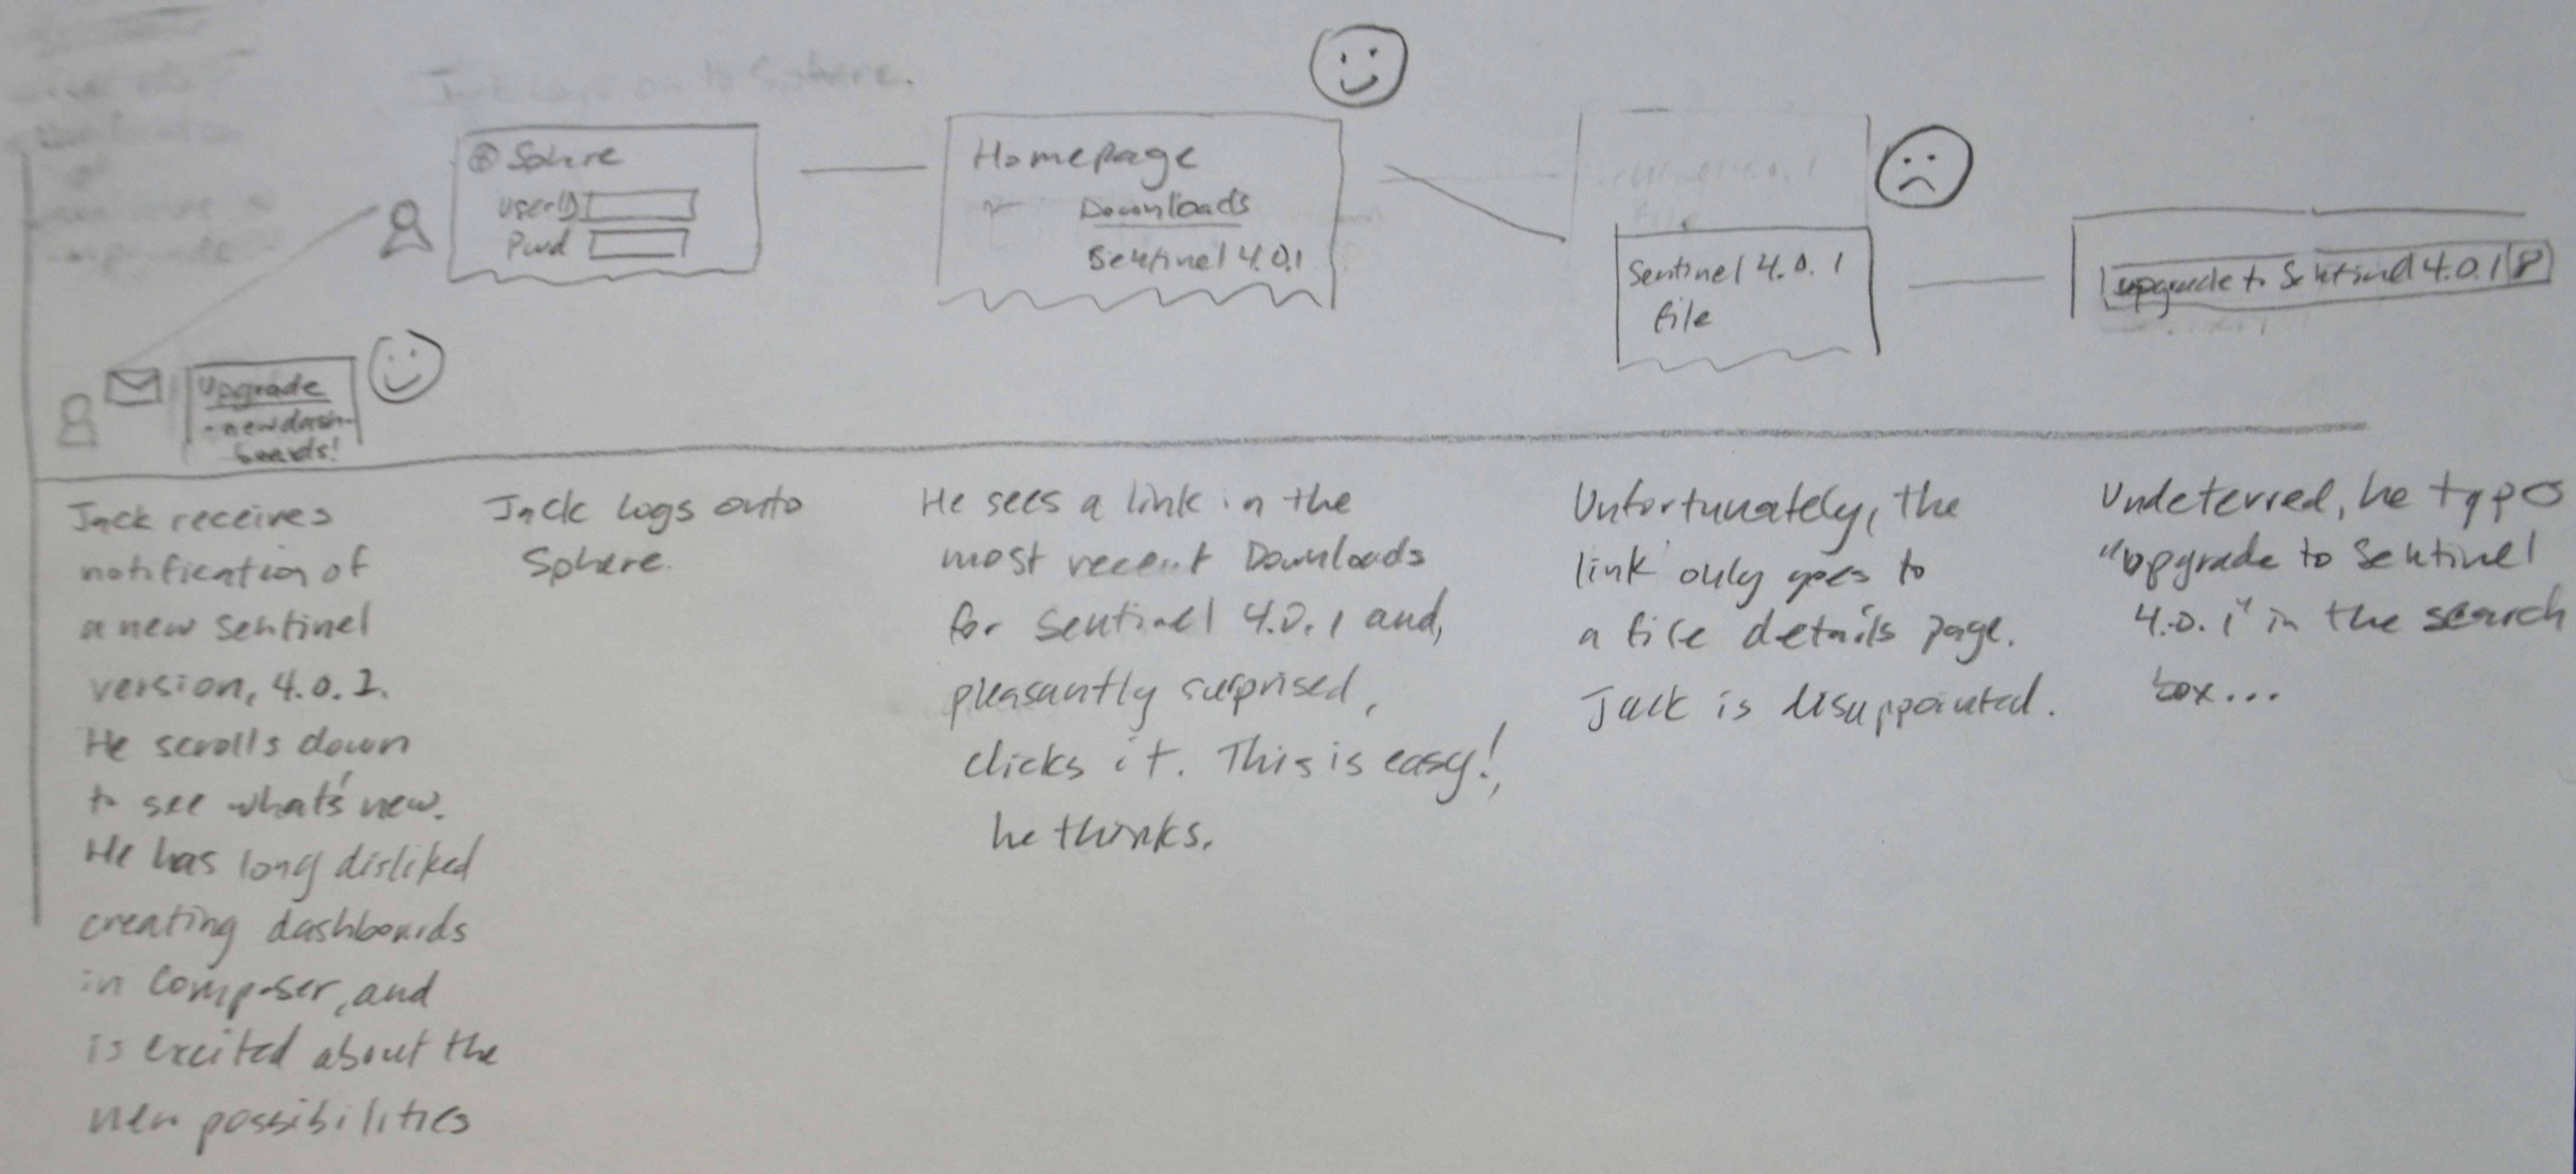 Jack logs on to Sphere.
Sphre
UserID
Pwd
Homepage
Downloads
Sentinel 4.0.1
Sentinel 4.0.1
file
Sentinel 4.0.1
file
upgrade to Sentinel 4.0.1
Upgrade
- new dash-
boards!
Jack receives
notification of
a new Sentinel
version, 4.0.1.
He scrolls down
to see what's new.
He has long disliked
creating dashboards
in Composer, and
is excited about the
new possibilities
Jack logs onto
Sphere.
He sees a link in the
most recent Downloads
for Sentinel 4.0.1 and,
pleasantly surprised,
clicks it. This is easy!,
he thinks.
Unfortunately, the
link only goes to
a file details page.
Jack is disappointed.
Undeterred, he types
"upgrade to Sentinel
4.0.1" in the search
box...